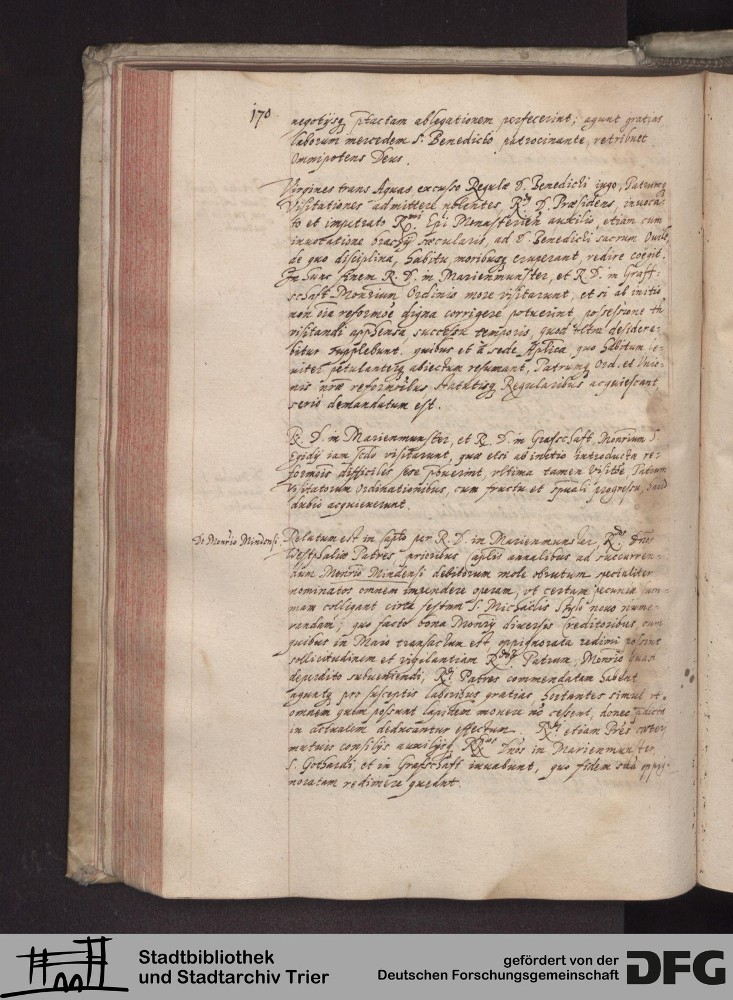 170
negotijsq ptactam ablegationem perfecerint; agunt gratias
laborum mercedem S. Benedicto patrocinante, retribuet
Omnipotens Deus.
Virgines trans Aquas excusso Regulæ D. Benedicti iugo, Patrumq
Visitationes admittere nolentes, R. D. Præsidens, inuoca-
to et impetrato Rmi Epi Monasterien auxilio, etiam cum
inuocatione brachij sæcularis, ad D. Benedicti sacrum Ouile,
de quo disciplina, habitu, moribusq exuperant, redire coegit.
In hunc finem R. D. in Marienmunster, et R. D. in Graff-
schafft Monrium Ordinis more visitarunt, et si ab initio
non oia reformoe digna corrigere potuerint, possessione tn
visitandi apphensa successu temporis, quod vltra desidera-
bitur supplebunt. quibus et a sede Aplica quo habitum le-
uiter petulanterq abiectum resumant, Patrumq Ord. et Unio-
nis nræ reformoibus statutisq Regularibus acquiescant
serio demandatum est.
R. D. in Marienmunster, et R. D. in Grafschafft, Monrium S.
Egidij iam sedo visitarunt, quæ etsi ab initio introductæ re-
formois difficiles sese pbuerint, vltima tamen visitoe Patrum
visitatorum ordinationibus, cum fructu et spuali progressu, haud
dubio acquieuerunt.
De Monrio Mindensi.
Relatum est in capto per R. D. in Marienmunster, Rdos Dnos
Westphaliæ Patres prioribus caplis annalibus ad succurren-
dum Monrio Mindensi debitorum mole obrutum specialiter
nominatos omnem impendere operam, vt certam pecuniæ sum-
mam colligant circa festum S. Michaelis stylo nouo nume-
randam; quo facto bona Monrij diuersis creditoribus, cum
quibus in Maio transactum est oppignorata redimi possint
sollicitudinem et vigilantiam Rdorum Patrum, Monrio quasi
deperdito subueniendi, Rdi Patres commendatam habent
aguntq pro susceptis laboribus gratias hortantes simul vt
omnem quem possunt lapidem mouere no cessent, donec
in actualem deducantur effectum. Rdi etiam Pres
mutuis consilijs auxilijsq Rdos Dnos in Marienmunster,
S. Gothardi, et in Grafschafft iuuabunt, quo fidem suam oppig-
noratam redimere queant.
Stadtbibliothek
und Stadtarchiv Trier
gefördert von der
Deutschen Forschungsgemeinschaft
DFG